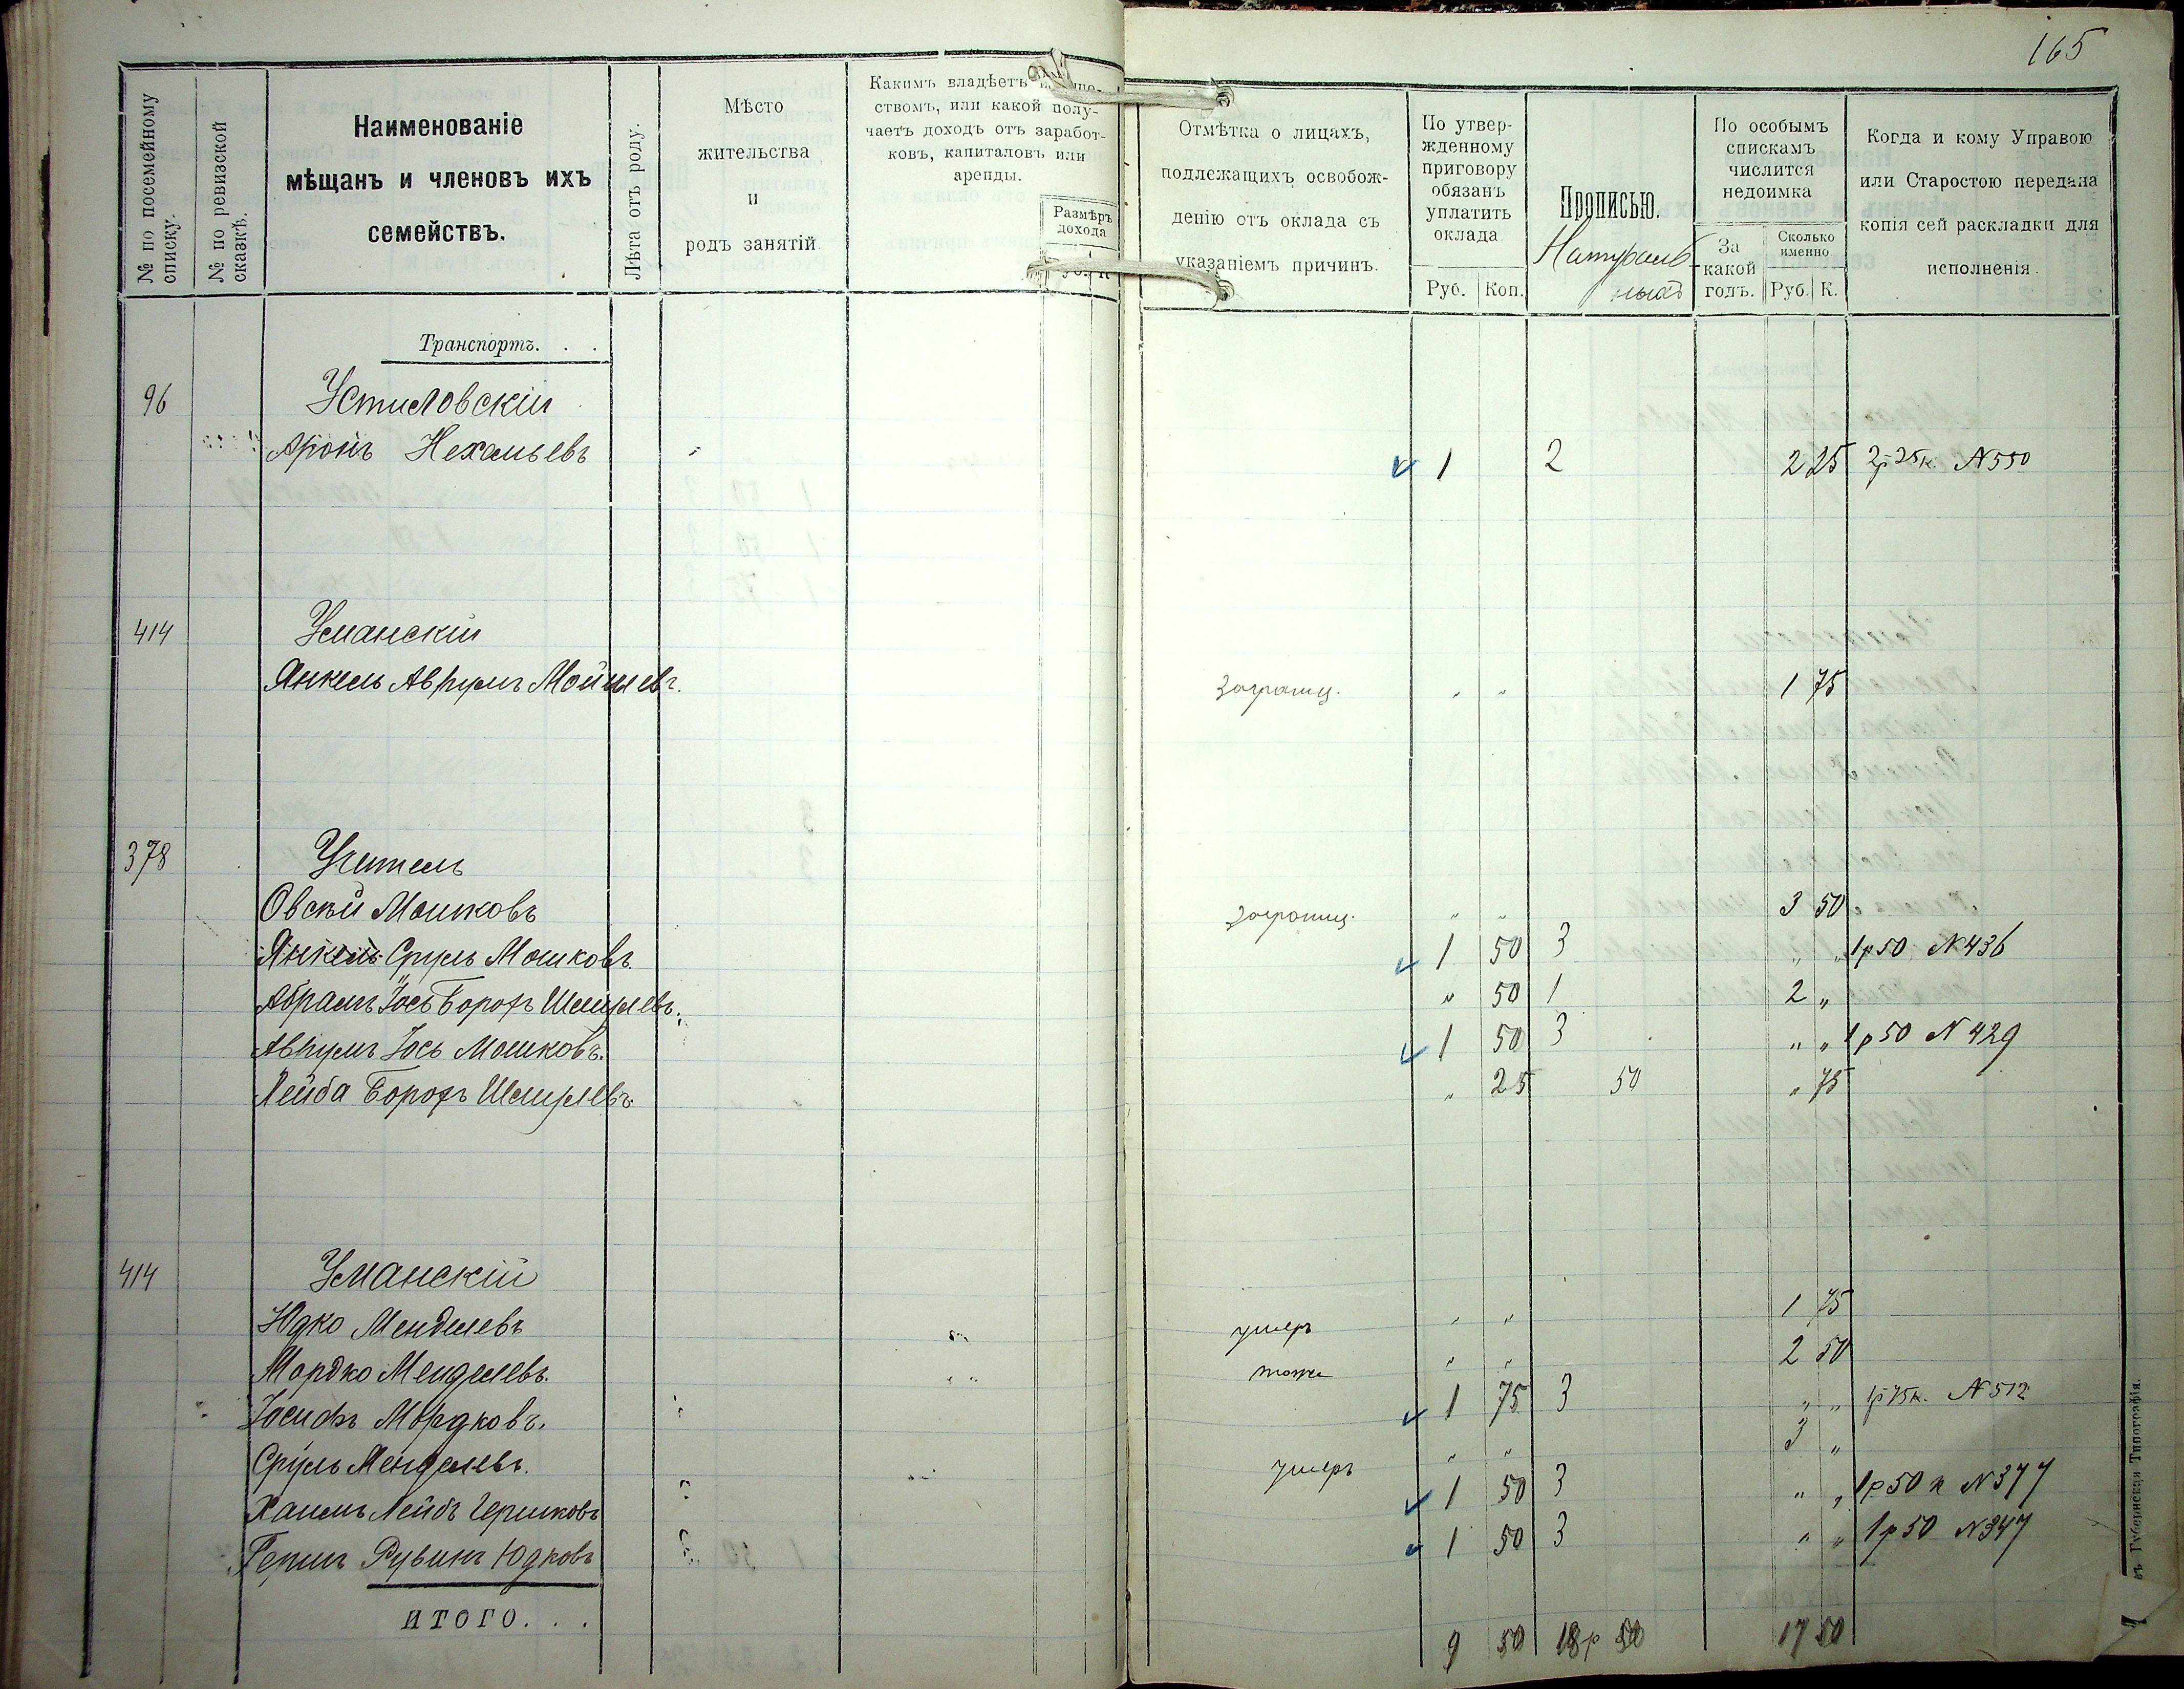 165
№ по посемейному списку.
№ по ревизской сказкѣ.
Наименованіе
мѣщанъ и членовъ ихъ
семействъ.
Лѣта отъ роду.
Мѣсто
жительства
и
родъ занятій
Какимъ владѣетъ
ствомъ, или какой полу-
чаетъ доходъ отъ заработ-
ковъ, капиталовъ или
аренды.
Размѣръ
дохода
Отмѣтка о лицахъ,
подлежащихъ освобож-
денію отъ оклада съ
указаніемъ причинъ.
По утвер-
жденному
приговору
обязанъ
уплатить
оклада
Руб. Коп.
Прописью.
Натураль
ныхъ
По особымъ
спискамъ
числится
недоимка
За
какой
годъ.
Сколько
именно
Руб. К.
Когда и кому Управою
или Старостою передана
копія сей раскладки для
исполненія.
Транспортъ. . .
96 Устиловскій
Аронъ Нехамьевъ 1 2 2 25 2р 25к. N 550
414 Уманскій
Янкель Аврумъ Мойшевъ. Заграниц. " " 1 75
378 Учитель
Овсѣй Мошковъ Заграниц. " " 3 50
Янкель Сруль Мошковъ. 1 50 3 " " 1р 50 N 436
Абрамъ Іось Борохъ Шмулевъ. " 50 1 2 "
Аврумъ Іось Мошковъ. 1 50 3 " " 1р 50 N 429
Лейба Борохъ Шмулевъ " 25 50 " 75
414 Уманскій
Юдко Менделевъ умеръ " " 1 75
Мордко Менделевъ. тоже " " 2 50
Іосифъ Мордковъ. 1 75 3 " " 1р 75к. N 512
Сруль Менделевъ. умеръ " " 3 "
Хаимъ Лейбъ Гершковъ 1 50 3 " " 1р 50 к N 377
Гершъ Рувинъ Юдковъ 1 50 3 " " 1р 50 N 347
ИТОГО. . . 9 50 18р 50 17 50
въ Губернская Типографія.